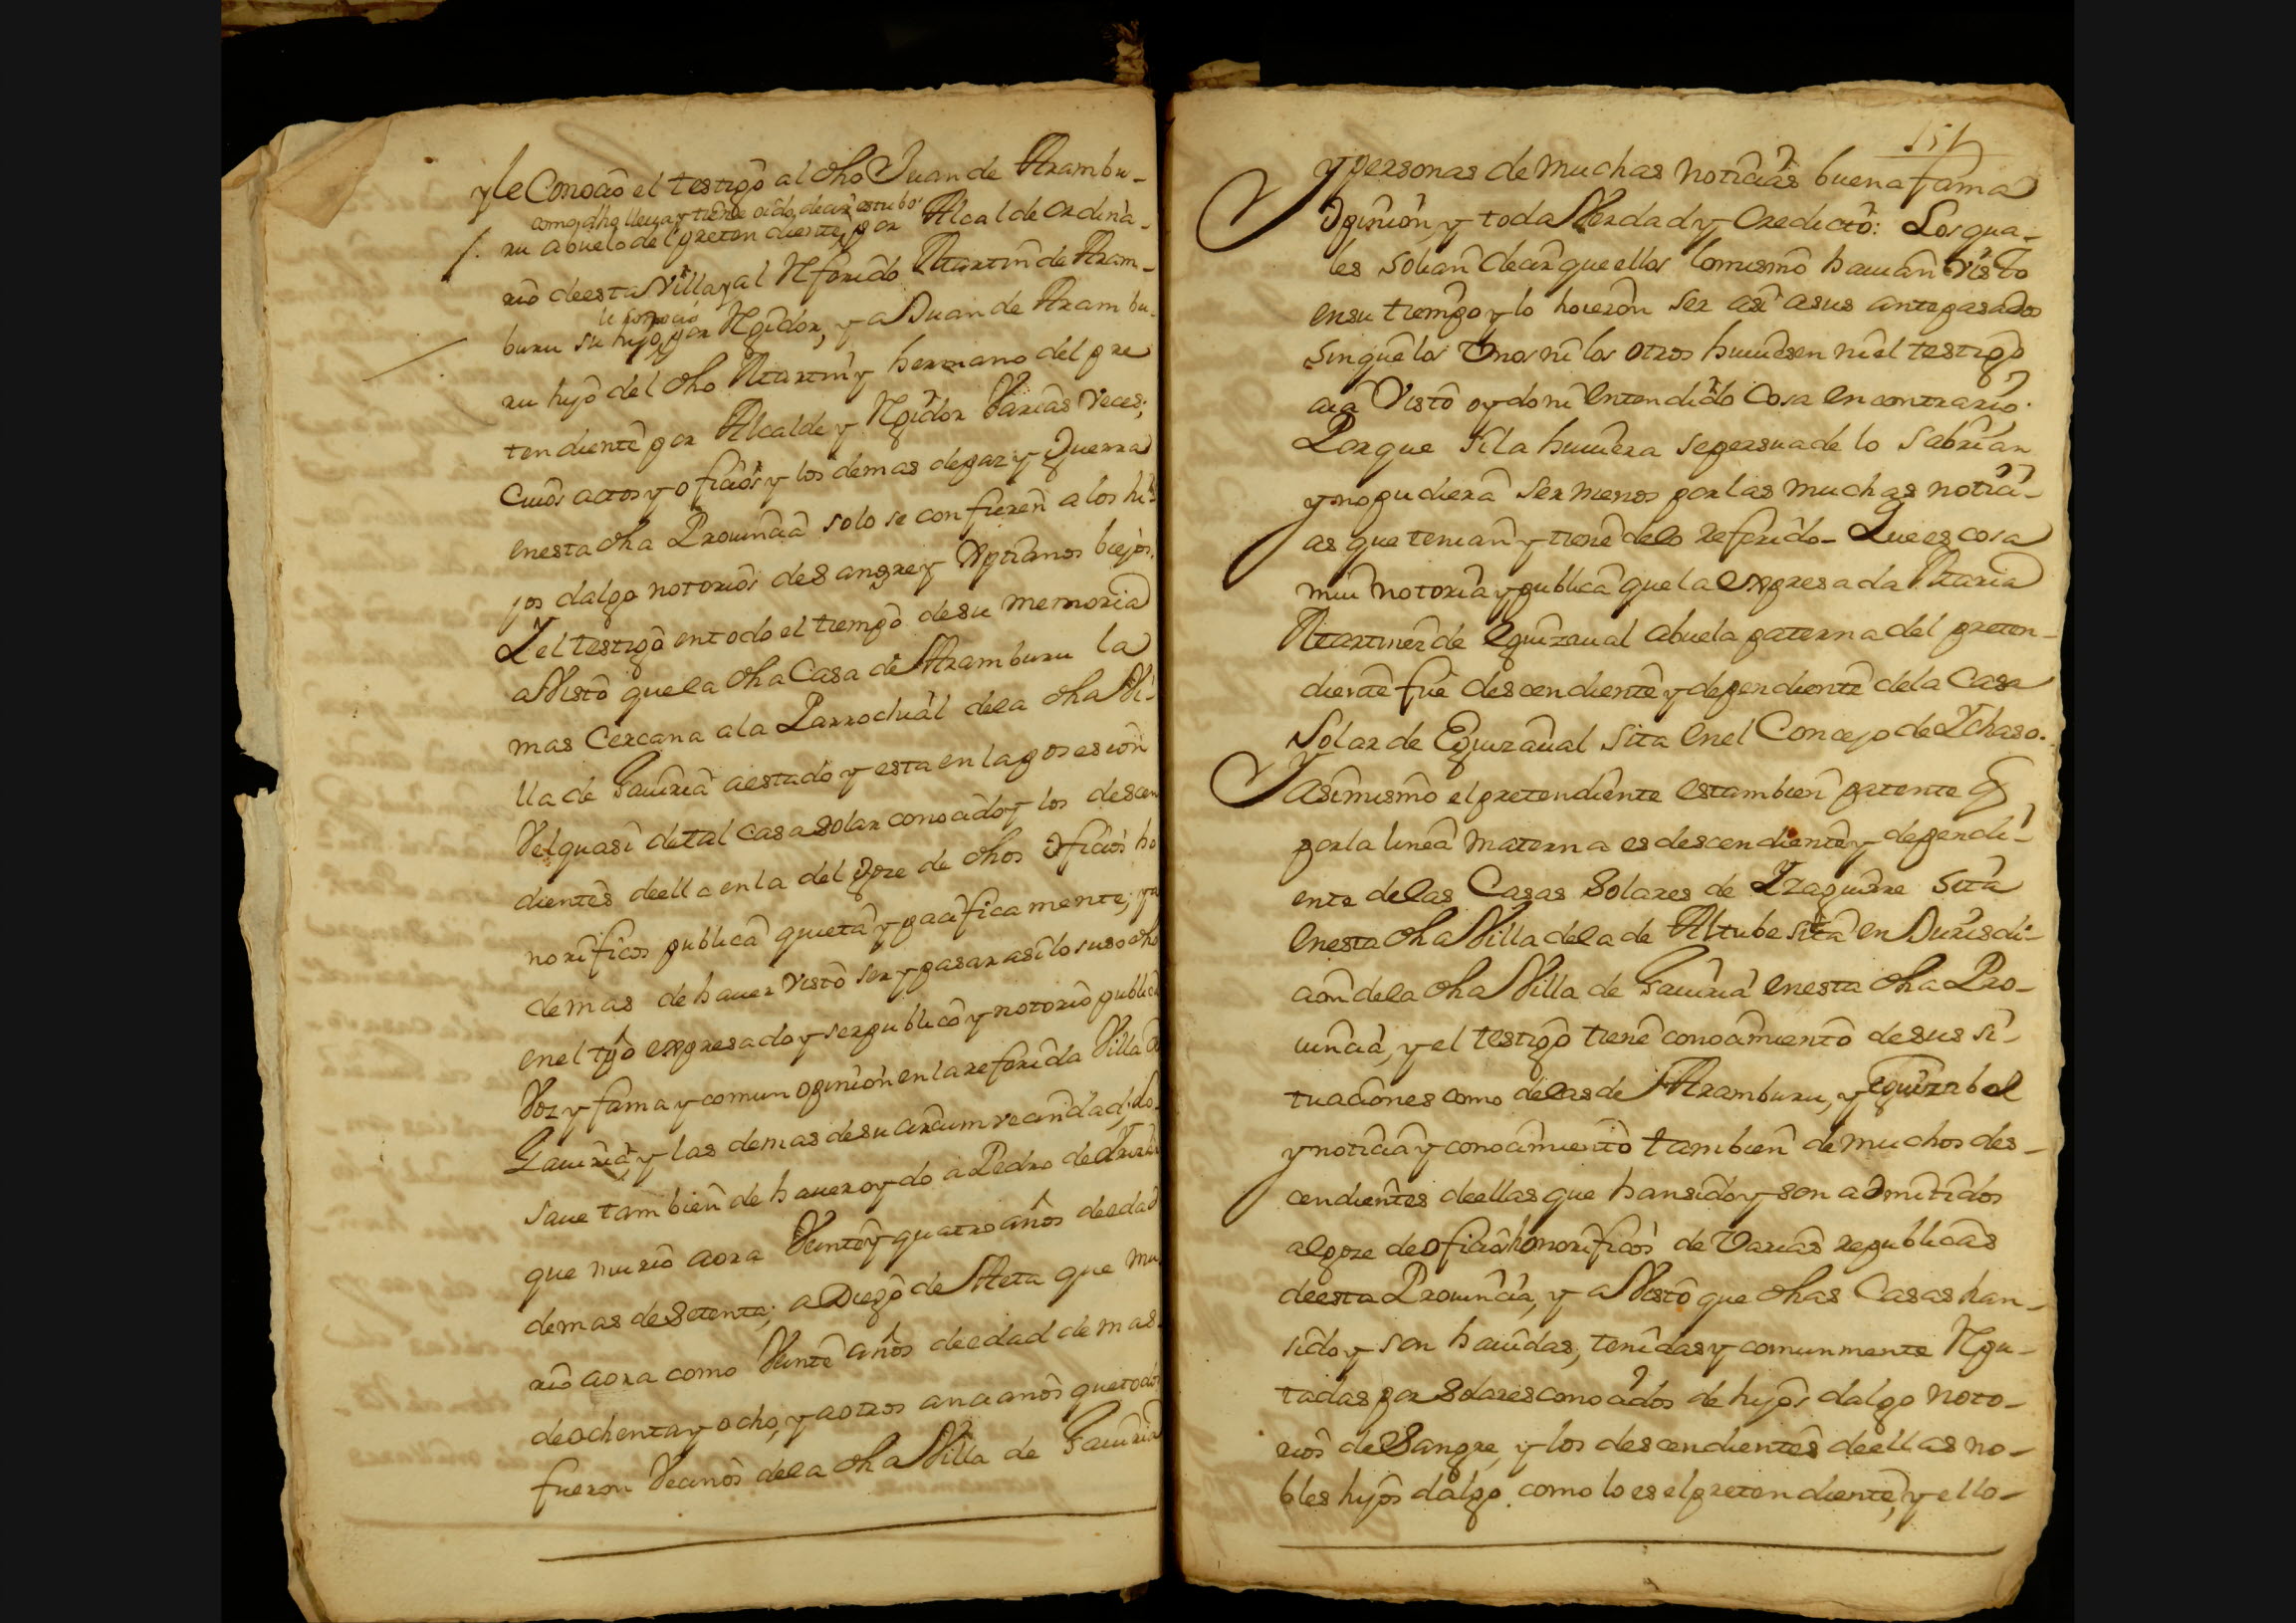 yle Conocio el testigo al dho Juan de Arambu-
como dho lleua y tiene oido decir estubo
ru abuelo del pretendiente, por Alcalde ordina-
rio deesta Villa, y al Referido Martin de Aram-
le conocio
buru su hijo, por Rexidor, y a Juan de Arambu-
ru hijo del dho Martin y hermano del pre
tendiente por Alcalde y Regidor Varias Veces;
Cuios actos y oficios y los demas de paz y Guerra
enesta dha Prouincia solo se confieren a los hi-
jos dalgo notorios de Sangre y Xptianos biejos.
Y el testigo entodo el tiempo desu memoria
a Visto quela dha Casa de Aramburu la
mas Cercana ala Parrochial dela dha Vi-
lla de Gauiria aestado y esta en la posesion
Velquasi detal Casa Solar conocido y los descen
dientes deella enla del goze de dhos oficios ho
norificos publica quieta y pacificamente; y a
demas de hauer visto ser y pasar asi lo suso dho
enel tpo expresado y ser publico y notorio publica
Voz y fama y comun opinion en la referida Villa de
Gauiria, y las demas desu circumvecindad, lo
saue tambien de hauer oydo a Pedro de
que murio aora Veinte y quatro años deedad
demas de Setenta; a Diego de Aeta que mu
rio aora como Veinte años deedad demas
de ochenta y ocho, y aotros ancianos quetodos
fueron Vecinos dela dha Villa de Gauiria
151
y personas de muchas noticias buena fama
Opinion, y toda Verdad y Credicto: Los qua-
les solian decir que ellos lo mismo hauian Visto
ensu tiempo y lo hoieron ser asi asus antepasados
sinque los Unos ni los otros huuiesen ni el testigo
aia Visto oydo ni entendido Cosa en contrario.
Porque si la huuiera sepersuade lo sabrian
y no pudiera ser menos por las muchas notici-
as que tenian y tiene delo referido. Que es cosa
mui notoria y publica que la expresada Maria
Martinez de Eguizaual abuela paterna del preten-
diente fue descendiente y dependiente dela Casa
Solar de Eguizaual sita enel Concejo de Ychaso.
Y asimismo el pretendiente estambien patente q
por la linea materna es descendiente y dependi-
ente delas Casas Solares de Yzaguirre sita
enesta dha Villa dela de Altube sita en Jurisdi-
cion dela dha Villa de Gauiria enesta dha Pro-
uincia, y el testigo tiene conocimiento desus si-
tuaciones como delas de Aramburu, y Eguizabal
y noticia y conocimiento tambien de muchos des-
cendientes deellas que han sido y son admitidos
al goze de oficios honorificos de Varias republicas
deesta Prouincia, y a Visto que dhas Casas han-
sido y son hauidas, tenidas y comunmente Repu-
tadas por Solares conocidos de hijos dalgo noto-
rios de Sangre, y los descendientes deellas no-
bles hijos dalgo. como lo es el pretendiente, y ello-